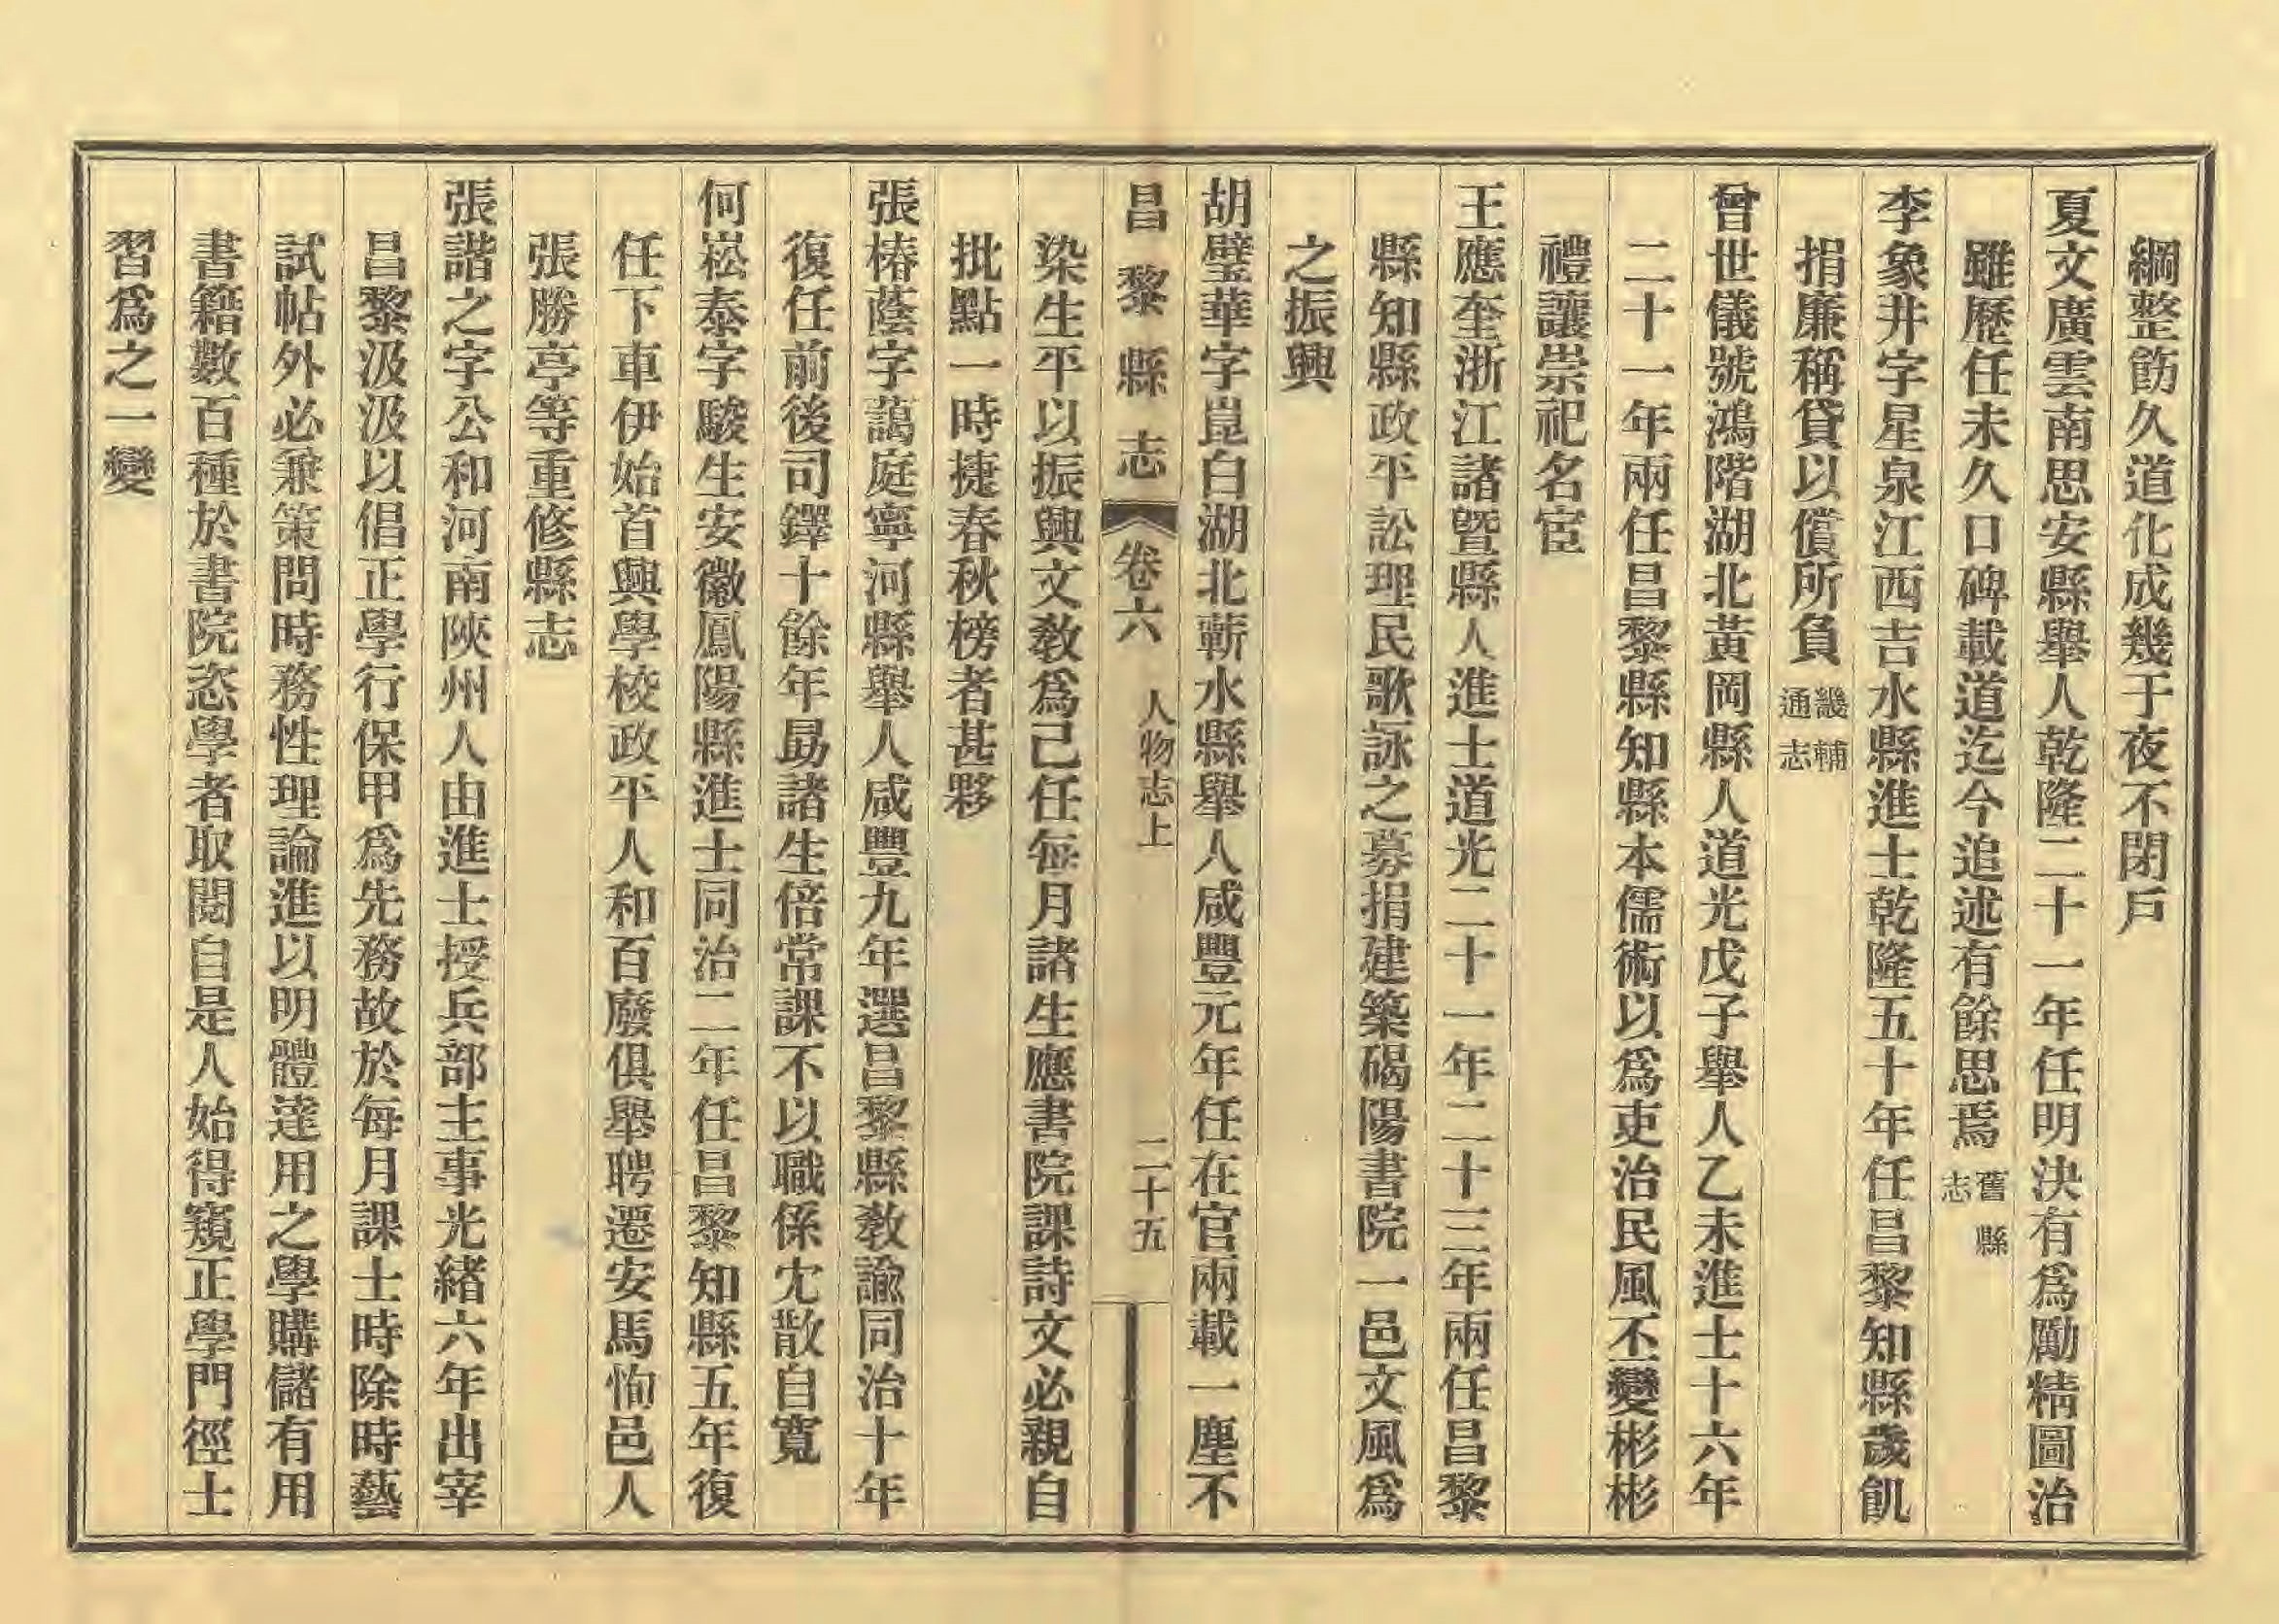 綱整飭久道化成幾于夜不閉戶
夏文廣雲南思安縣舉人乾隆二十一年任明決有爲勵精圖治
雖歷任未久口碑載道迄今追述有餘思焉舊縣志
李象井字星泉江西吉水縣進士乾隆五十年任昌黎知縣歲飢
捐廉稱貸以償所負畿輔通志
曾世儀號鴻階湖北黃岡縣人道光戊子舉人乙未進士十六年
二十一年兩任昌黎縣知縣本儒術以爲吏治民風丕變彬彬
禮讓崇祀名宦
王應奎浙江諸暨縣人進士道光二十一年二十三年兩任昌黎
縣知縣政平訟理民歌詠之募捐建築碣陽書院一邑文風爲
之振興
胡璧華字崑白湖北蘄水縣舉人咸豐元年任在官兩載一塵不
昌黎縣志 卷六 人物志上 二十五
染生平以振興文敎爲己任每月諸生應書院課詩文必親自
批點一時捷春秋榜者甚夥
張椿蔭字藹庭寧河縣舉人咸豐九年選昌黎縣敎諭同治十年
復任前後司鐸十餘年勗諸生倍常課不以職係冘散自寬
何崧泰字駿生安徽鳳陽縣進士同治二年任昌黎知縣五年復
任下車伊始首興學校政平人和百廢俱舉聘遷安馬恂邑人
張勝亭等重修縣志
張諧之字公和河南陝州人由進士授兵部主事光緒六年出宰
昌黎汲汲以倡正學行保甲爲先務故於每月課士時除時藝
試帖外必兼策問時務性理論進以明體達用之學購儲有用
書籍數百種於書院恣學者取閱自是人始得窺正學門徑士
習爲之一變